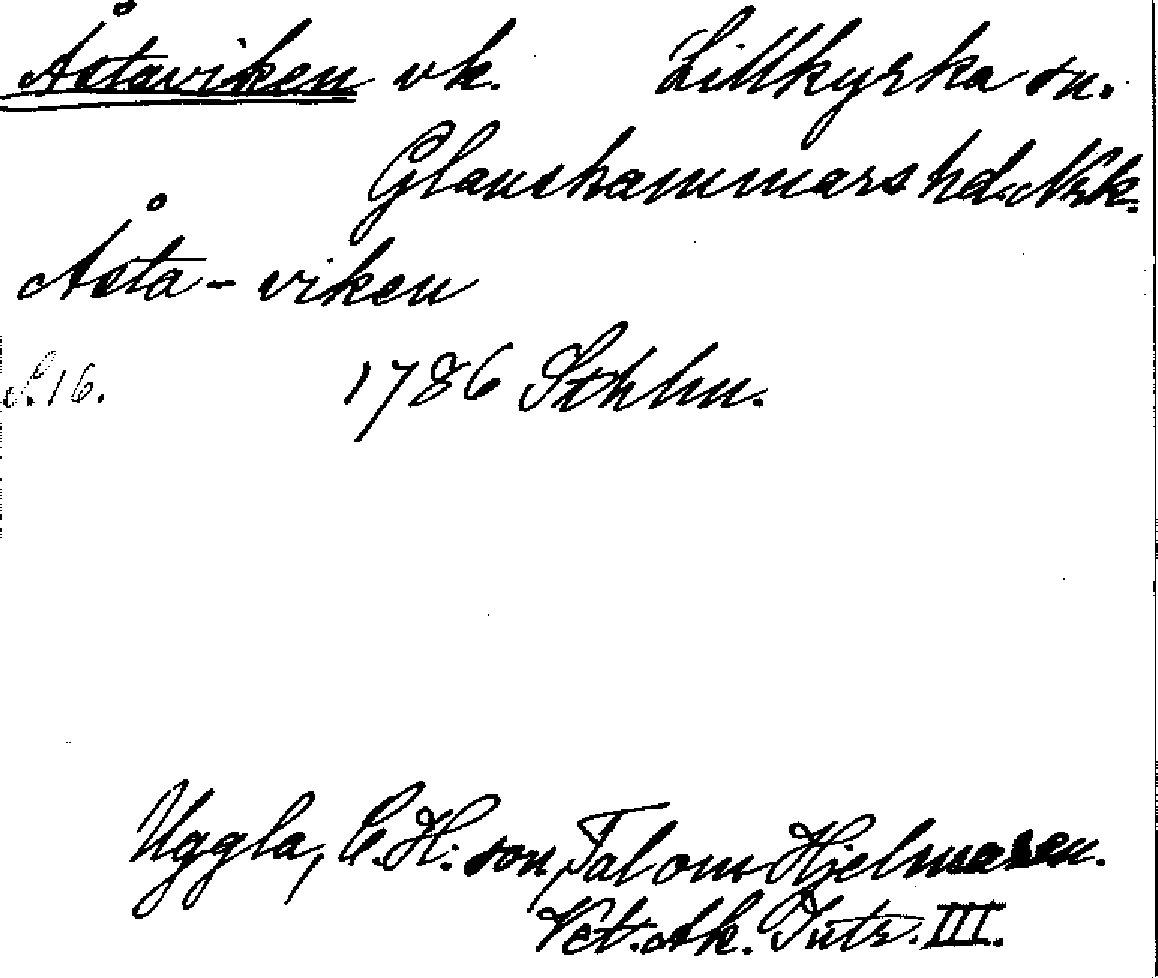 Åstaviken vk. Lillkyrka sn.
Glanshammars hd. Nrk.
Åsta-viken
S. 16. 1786 Sthlm.
Uggla, C. H:son, Tal om Hjelmaren.
Vet. Ak. Intr. III.